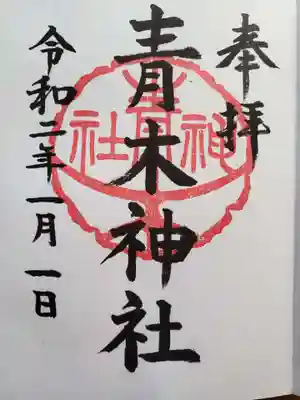 奉拝
青木神社
令和二年一月一日